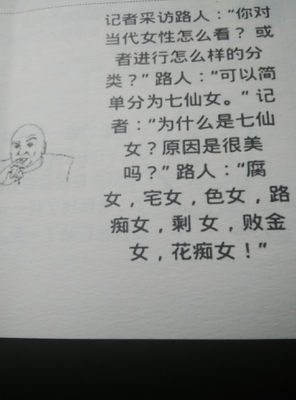 记者采访路人：“你对
当代女性怎么看？ 或
者进行怎么样的分
类？” 路人：“可以简
单分为七仙女。” 记
者：“为什么是七仙
女？原因是很美
吗？” 路人：“腐
女，宅女，色女，路
痴女，剩 女，败金
女，花痴女！”